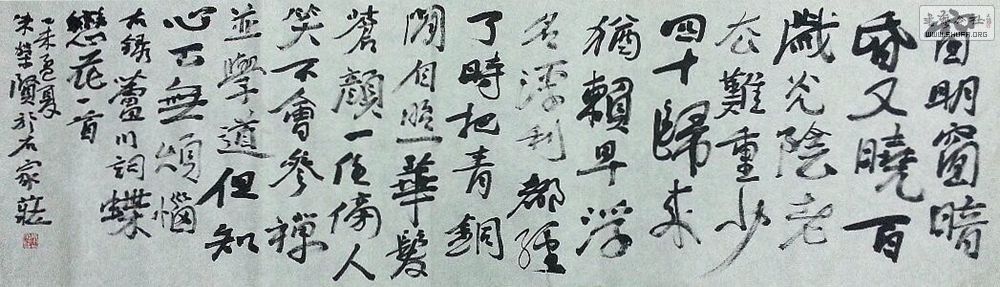 窗明窗暗
昏又曉百
歲光陰老
去難重少
四十歸來
猶賴早浮
名浮利都經
了時把青銅
閒自照華髮
蒼顏一任傍人
笑不會參禪
並學道但知
心下無煩惱
右錄川詞蝶
戀花一首
未夏
朱榮賢於石家莊
WWW.SHUFA.ORG